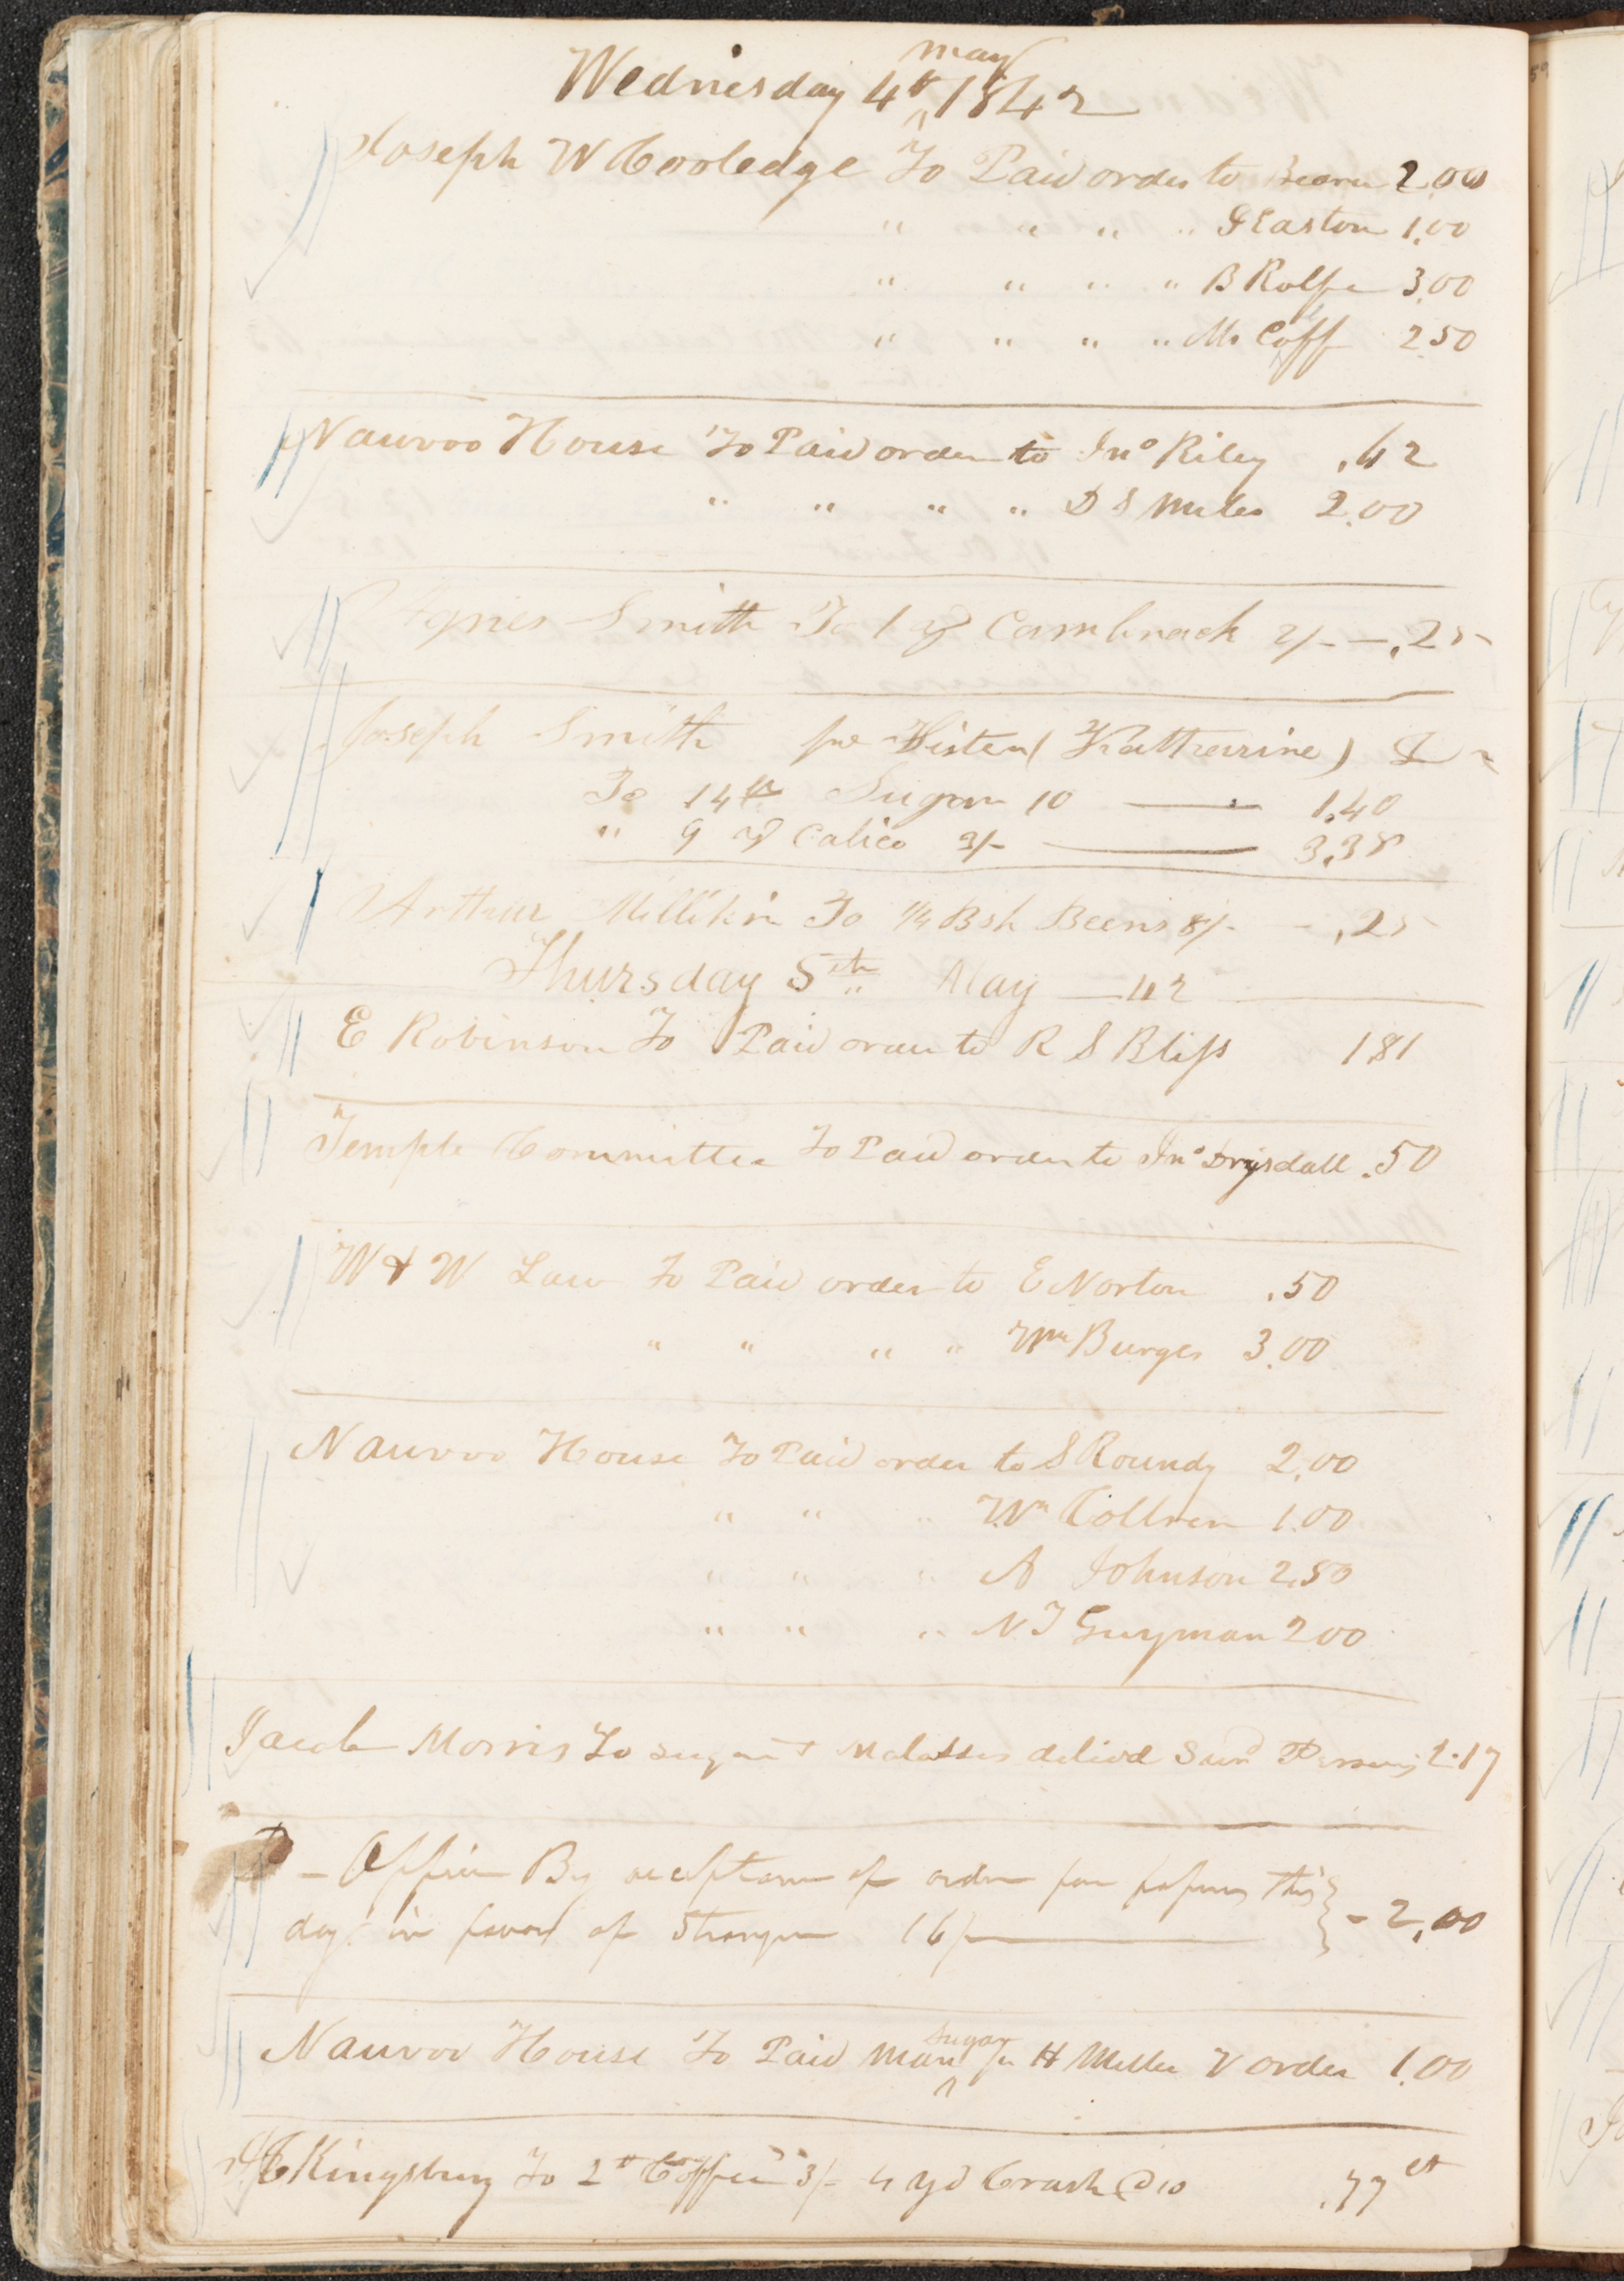 may
Wednesday 4th ^ 1842
Joseph W Cooledge To Paid order to Bearer 2.00
" " " " G Easton 1.00
" " " " B Rolfe 3.00
" " " " Mr Coff 2.50
Nauvoo House To Paid order to Jno Riley .42
" " " " D S Miles 2.00
Agnes Smith To 1 yd Cambrack 2/- — .25
Joseph Smith for Sister (Kattherine) Dr
To 14 lb Sugar 10 — 1.40
" 9 yd Calico 3/- — 3.38
Arthur Millikin To 1/4 Bsh Beens 8/- - .25
Thursday 5th May — 42
E Robinson To Paid order to R S Bliss 1.81
Temple Committee To Paid order to Jno Drysdall .50
W & W Law To Paid order to E Norton .50
" " " " Wm Burges 3.00
Nauvoo House To Paid order to S Roundy 2.00
" " " Wm Collren 1.00
" " " A Johnson 2.50
" " " N T Guyman 2 00
Jacob Morris To sugar & Malasses delivd Sund Persons 2.17
P – Office By acceptance of order for papers this } - 2.00
day in favor of Stranger 16/-
sugar
Nauvoo House To Paid Man ^ for H Miller V order 1.00
J C Kingsbury To 2 lb Coffee 3/- 4 yd Crash @ 10 .77 ct